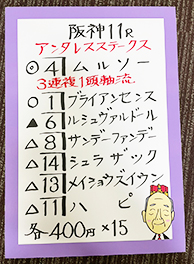 阪神11R
アンタレスステークス
◎4 ムルソー
3連複1頭軸流
○1 ブライアンセンス
▲6 ルシュヴァルドール
△8 サンデーファンデー
△14 シュラザック
△13 メイショウズイウン
△11 ハピ
各400円×15